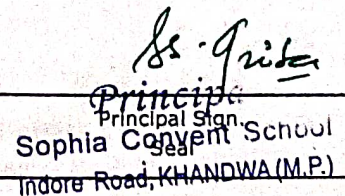 Principal
Principal Sign.
Seal
Sophia Convent School
Indore Road, KHANDWA (M.P.)